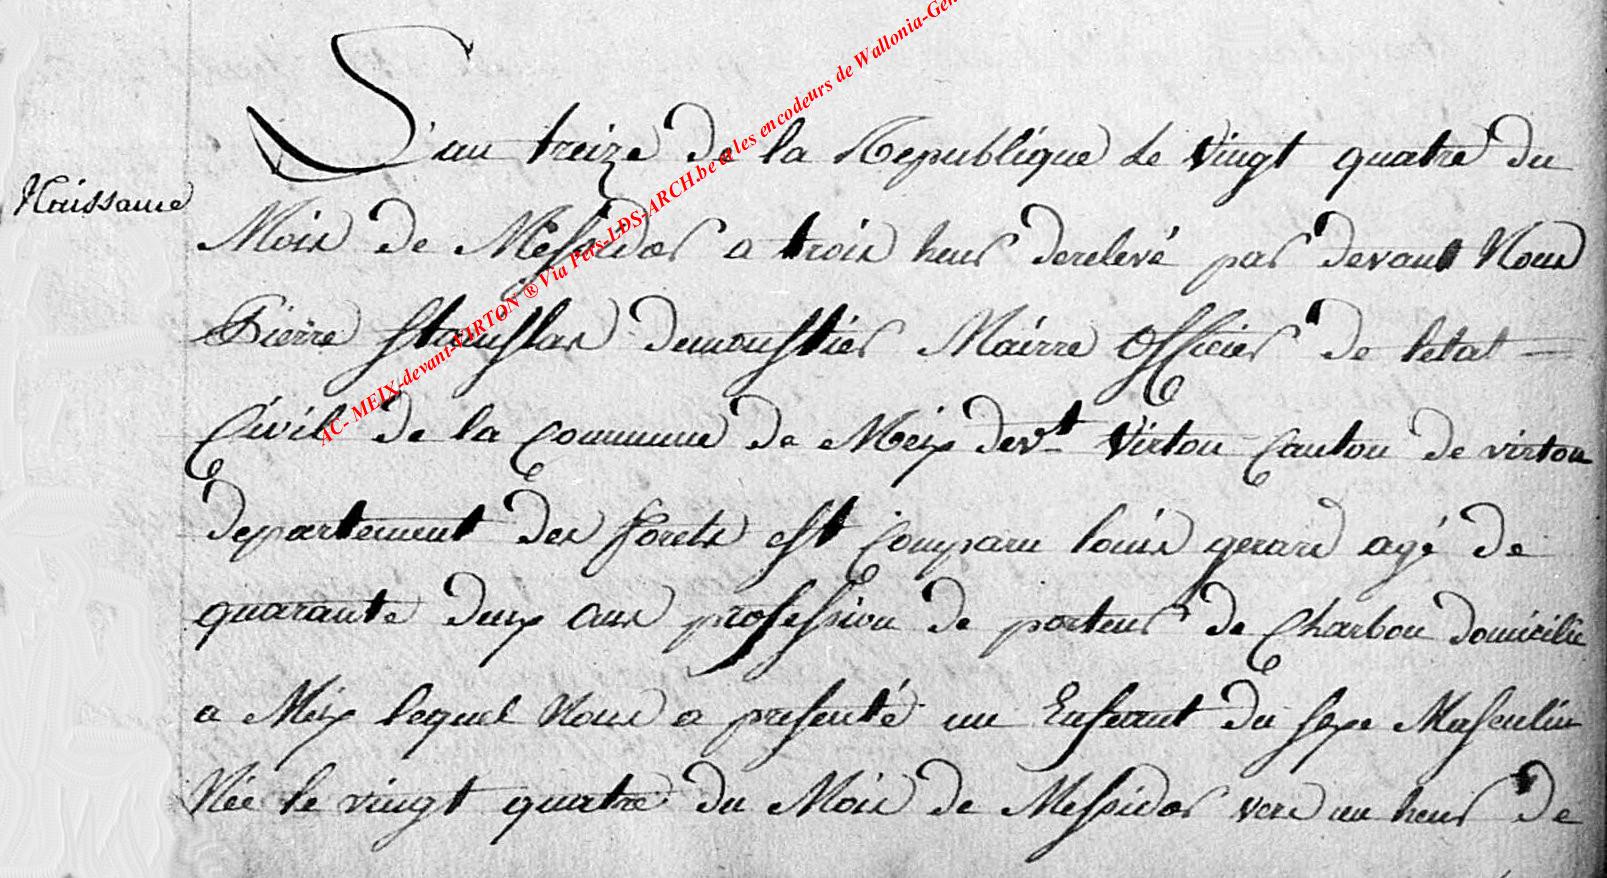 L'an treize de la Republique le vingt quatre du
Naissance
Mois de Messidor a trois heur derelevé par devant Nous
Pierre Stanislas demoustier Mairre Officier de letat
Civil de la Commune de Meix devt Virton Canton de virton
departement des forets est Comparu louis gerard agé de
quarante deux ans profession de porteur de Charbon domicilié
a Meix lequel Nous a presenté un Enfant du sexe Masculin
Née le vingt quatre du Mois de Messidor vers un heur de
AC- MEIX-devant-VIRTON ® Via Pers-LDS-ARCH.be et les encodeurs de Wallonia-Gen